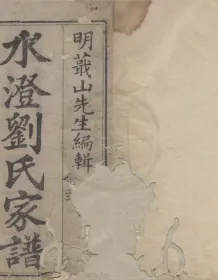 明蕺山先生編輯
水澄劉氏家譜